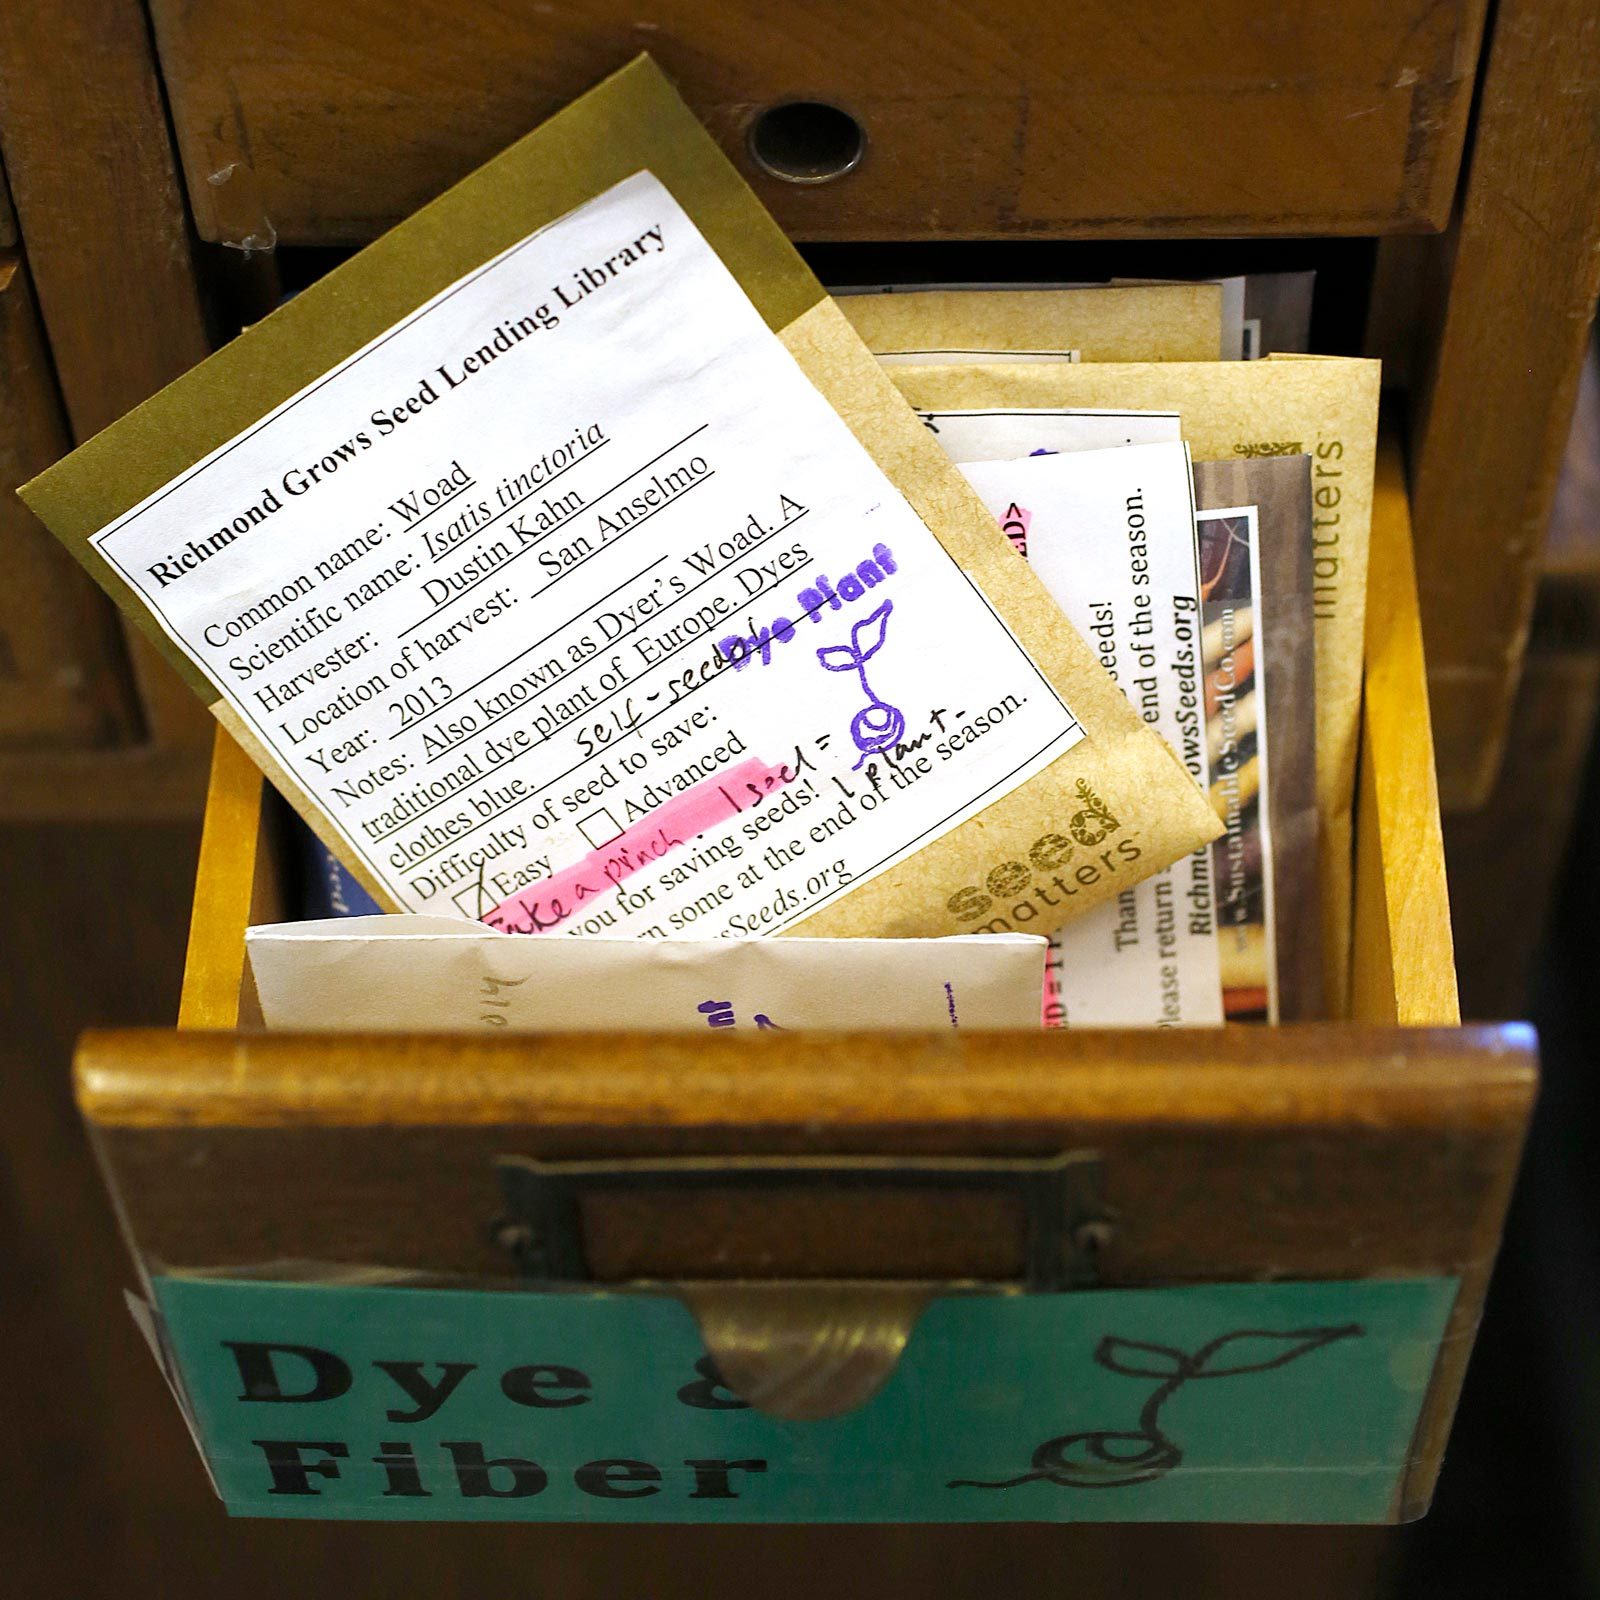 Richmond Grows Seed Lending Library
Common name: Woad
Scientific name: Isatis tinctoria
Harvester: Dustin Kahn
Location of harvest: San Anselmo
Year: 2013
Notes: Also known as Dyer's Woad. A
traditional dye plant of Europe. Dyes
clothes blue. self-seeds!
Dye Plant
Difficulty of seed to save:
Easy Advanced
Take a pinch. 1 seed =
1 plant.
you for saving seeds!
n some at the end of the season.
sSeeds.org
seed
matters
ED>
seeds!
end of the season.
owsSeeds.org
Than
Please return
Richm
www.SustainableSeedCo.com
matters
ED = 1 P
014
nt
Dye &
Fiber